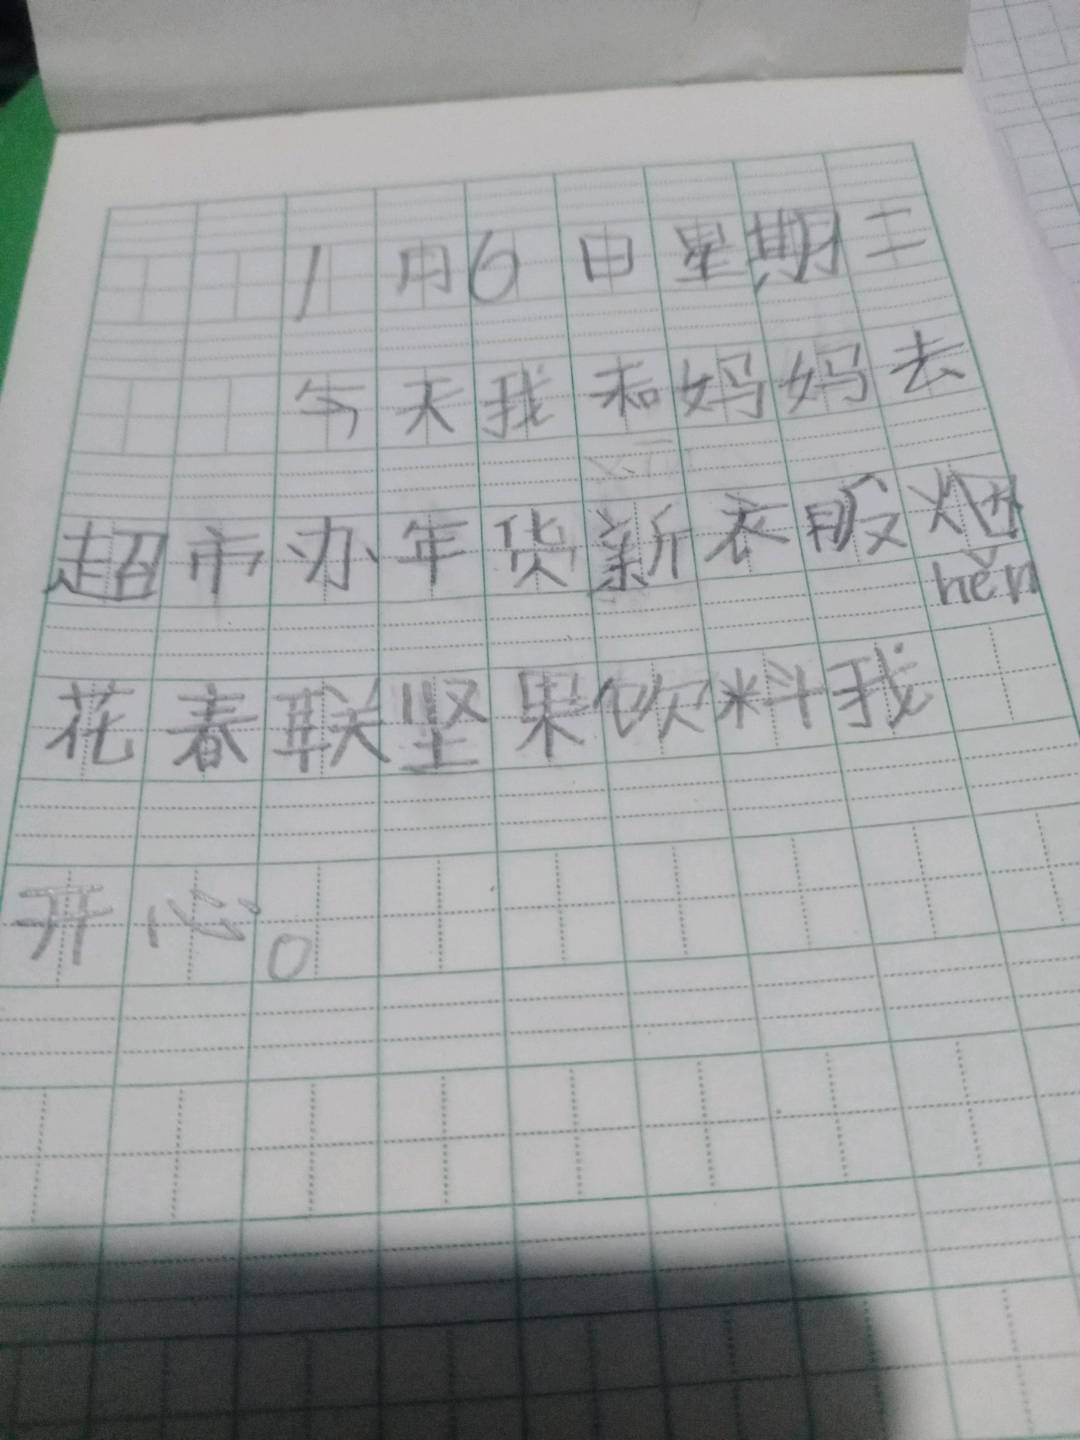 1月6日星期二
今天我和妈妈去
超市办年货新衣服烟
花春联坚果饮料我hěn
开心。